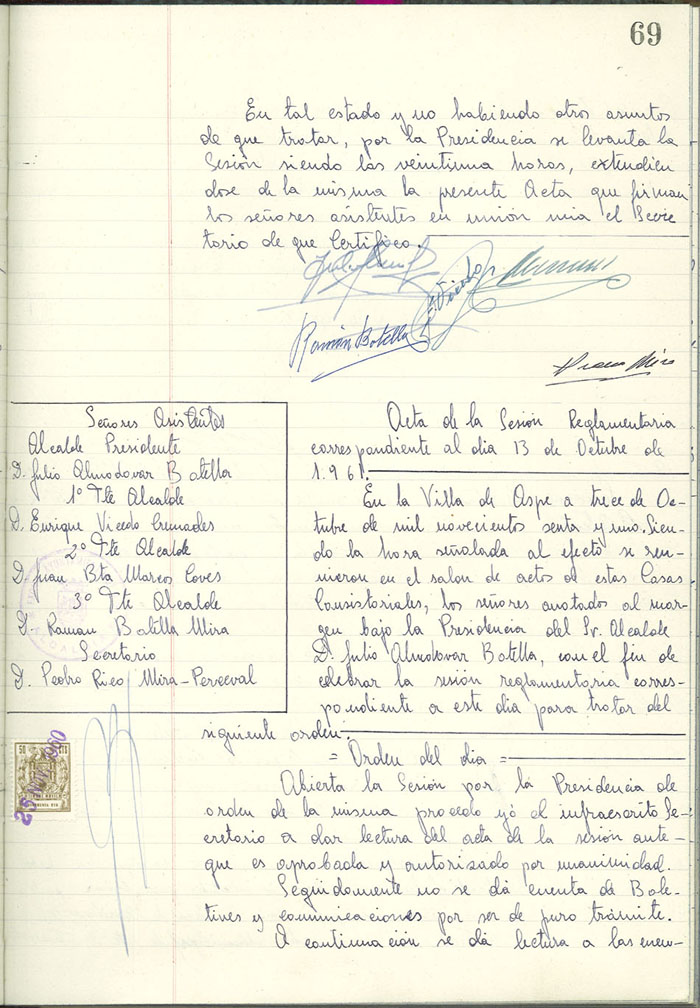 69
En tal estado y no habiendo otros asuntos
de que tratar, por la Presidencia se levanta la
Sesión siendo las veintiuna horas, extendien
dose de la misma la presente Acta que firman
los señores asistentes en unión mia el Secre
tario de que Certifico.
Ramón Botella
Señores Asistentes
Alcalde Presidente
D. Julio Almodovar Botella
1º Tte Alcalde
D. Enrique Vicedo Cremades
2º Tte Alcalde
D. Juan Bta Marcos Coves
3º Tte Alcalde
D. Ramon Botella Mira
Secretario
D. Pedro Rico Mira-Perceval
Acta de la Sesión Reglamentaria
correspondiente al dia 13 de Octubre de
1.961.
En la Villa de Aspe a trece de Oc-
tubre de mil novecientos senta y uno. Sien-
do la hora señalada al efecto se reu-
nieron en el salon de actos de estas Casas
Consistoriales, los señores anotados al mar-
gen bajo la Presidencia del Sr. Alcalde
D. Julio Almodovar Botella, con el fin de
celebrar la sesión reglamentaria corres-
pondiente a este dia para tratar del
siguiente orden:
= Orden del dia =
Abierta la Sesión por la Presidencia de
orden de la misma procedo yó el infraescrito Se-
cretario a dar lectura del acta de la sesión ante-
que es aprobada y autorizado por unanimidad.
Seguidamente no se dá cuenta de Bole-
tines y comunicaciones por ser de puro trámite.
A continuación se dá lectura a las cuen-
50 CTS